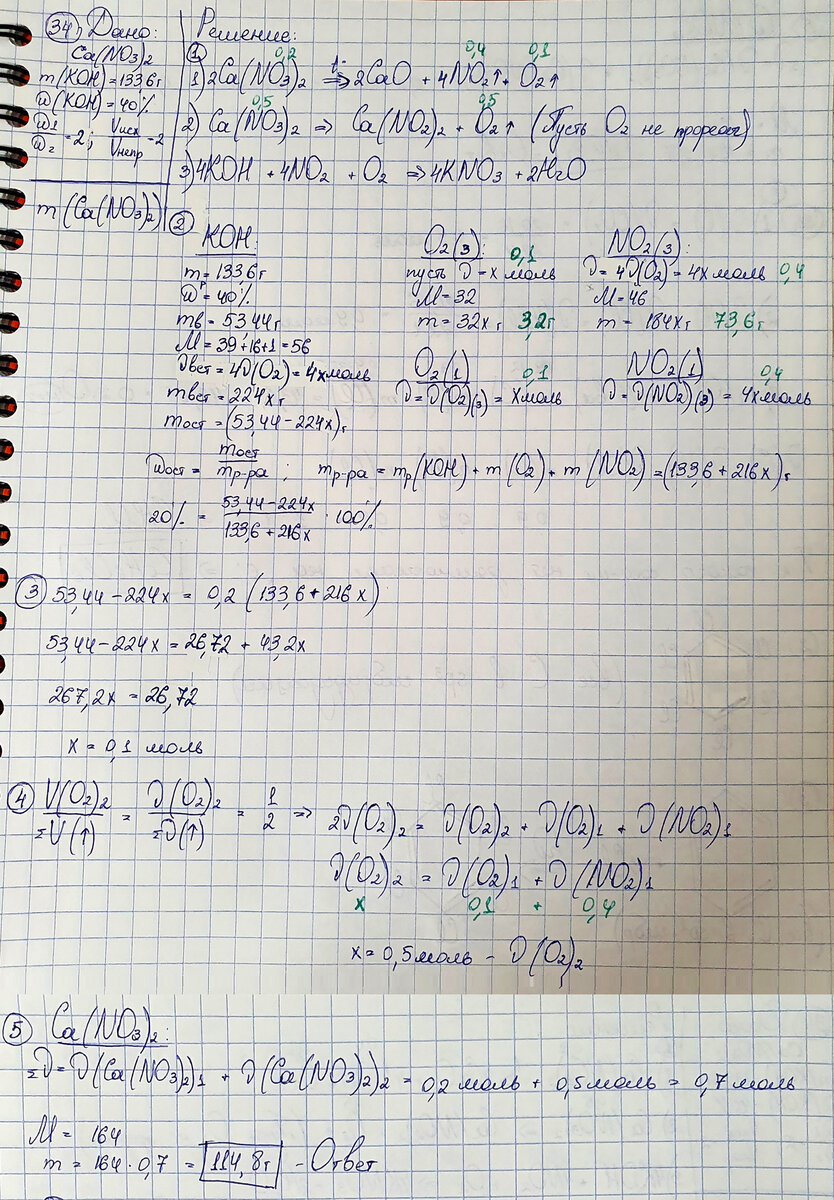 34) Дано:
Ca(NO3)2
m(KOH)=133,6г
ω(KOH)=40%
ω1/ω2=2; Vисх/Vнепр=2
m(Ca(NO3)2)
Решение:
①
0,2 0,4 0,1
1) 2Ca(NO3)2 t°⇒ 2CaO + 4NO2↑ + O2↑
0,5 0,5
2) Ca(NO3)2 ⇒ Ca(NO2)2 + O2↑ (Пусть O2 не прореаг)
3) 4KOH + 4NO2 + O2 ⇒ 4KNO3 + 2H2O
②
KOH:
mр=133,6г
ω=40%
mв=53,44г
M=39+16+1=56
νвст=4ν(O2)=4x моль
mвст=224xг
mост=(53,44-224x)г
O2(3): 0,1
пусть ν=x моль
M=32
m=32xг 3,2г
NO2(3):
ν=4ν(O2)=4x моль 0,4
M=46
m=184xг 73,6г
O2(1) 0,1
ν=ν(O2)(3)=x моль
NO2(1) 0,4
ν=ν(NO2)(3)=4x моль
ωост = mост/mр-ра ; mр-ра = mр(KOH) + m(O2) + m(NO2) = (133,6+216x)г
20% = (53,44-224x)/(133,6+216x) · 100%
③ 53,44-224x = 0,2(133,6+216x)
53,44-224x = 26,72 + 43,2x
267,2x = 26,72
x = 0,1 моль
④ V(O2)2/ΣV(↑) = ν(O2)2/Σν(↑) = 1/2 ⇒ 2ν(O2)2 = ν(O2)2 + ν(O2)1 + ν(NO2)1
ν(O2)2 = ν(O2)1 + ν(NO2)1
x 0,1 + 0,4
x=0,5 моль - ν(O2)2
⑤ Ca(NO3)2:
Σν=ν(Ca(NO3)2)1 + ν(Ca(NO3)2)2 = 0,2 моль + 0,5 моль = 0,7 моль
M = 164
m = 164·0,7 = 114,8г - Ответ